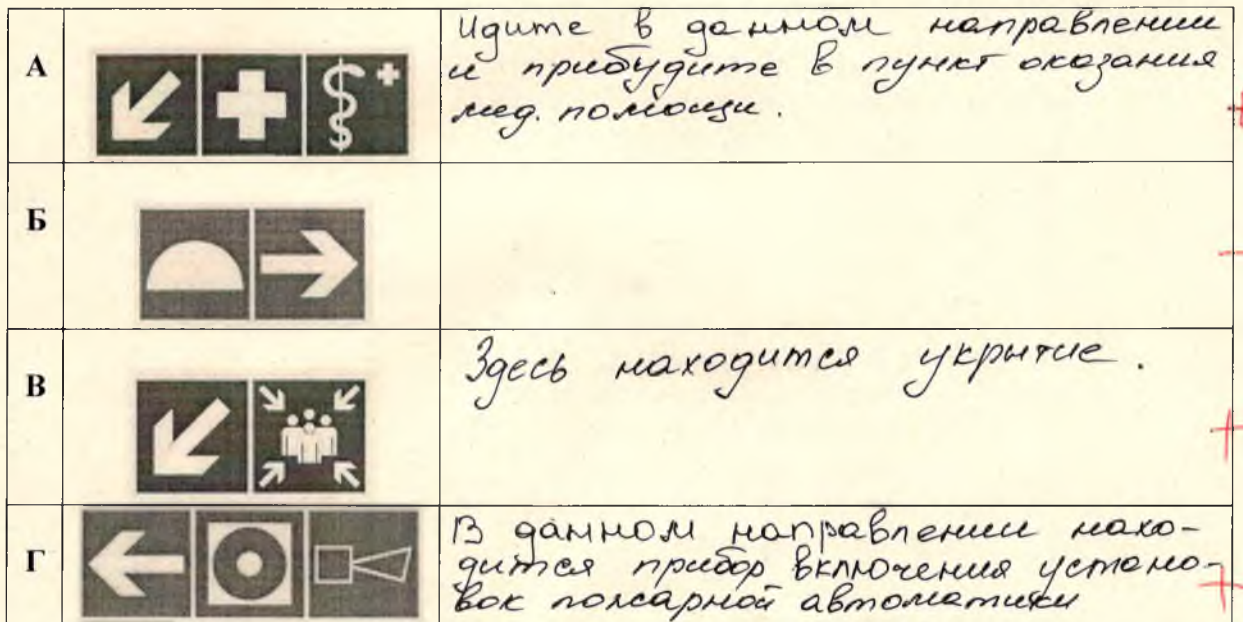 А
Идите в данном направлении
и прибудите в пункт оказания
мед. помощи.
+
Б
−
В
Здесь находится укрытие.
+
Г
В данном направлении нахо-
дится прибор включения устано-
вок пожарной автоматики
+